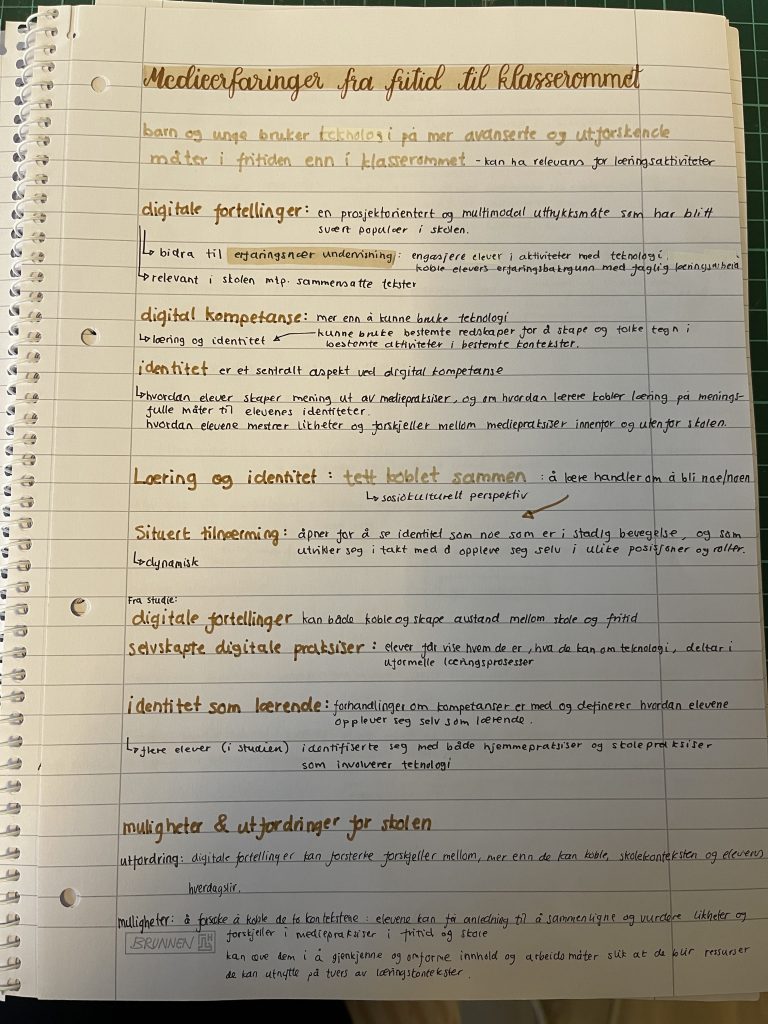 Medieerfaringer fra fritid til klasserommet
barn og unge bruker teknologi på mer avanserte og utforskende
måter i fritiden enn i klasserommet - kan ha relevans for læringsaktiviteter
digitale fortellinger: en prosjektorientert og multimodal uttrykksmåte som har blitt
svært populær i skolen.
↳ bidra til erfaringsnær undervisning: engasjere elever i aktiviteter med teknologi.
koble elevers erfaringsbakgrunn med faglig læringsarbeid
↳ relevant i skolen mtp. sammensatte tekster
digital kompetanse: mer enn å kunne bruke teknologi
↳ læring og identitet ← kunne bruke bestemte redskaper for å skape og tolke tegn i
bestemte aktiviteter i bestemte kontekster.
identitet er et sentralt aspekt ved digital kompetanse
↳ hvordan elever skaper mening ut av mediepraksiser, og om hvordan lærere kobler læring på menings-
fulle måter til elevenes identiteter.
hvordan elevene mestrer likheter og forskjeller mellom mediepraksiser innenfor og utenfor skolen.
Læring og identitet: tett koblet sammen: å lære handler om å bli noe/noen
↳ sosiokulturelt perspektiv
Situert tilnærming: åpner for å se identitet som noe som er i stadig bevegelse, og som
utvikler seg i takt med å oppleve seg selv i ulike posisjoner og roller.
↳ dynamisk
Fra studie:
digitale fortellinger kan både koble og skape avstand mellom skole og fritid
selvskapte digitale praksiser: elever får vise hvem de er, hva de kan om teknologi, deltar i
uformelle læringsprosesser
identitet som lærende: forhandlinger om kompetanser er med og definerer hvordan elevene
opplever seg selv som lærende.
↳ flere elever (i studien) identifiserte seg med både hjemmepraksiser og skolepraksiser
som involverer teknologi
muligheter & utfordringer for skolen
utfordring: digitale fortellinger kan forsterke forskjeller mellom, mer enn de kan koble, skolekonteksten og elevens
hverdagsliv.
muligheter: å forsøke å koble de to kontekstene: elevene kan få anledning til å sammenligne og vurdere likheter og
forskjeller i mediepraksiser i fritid og skole
BRUNNEN
kan øve dem i å gjenkjenne og omforme innhold og arbeidsmåter slik at de blir ressurser
de kan utnytte på tvers av læringskontekster.